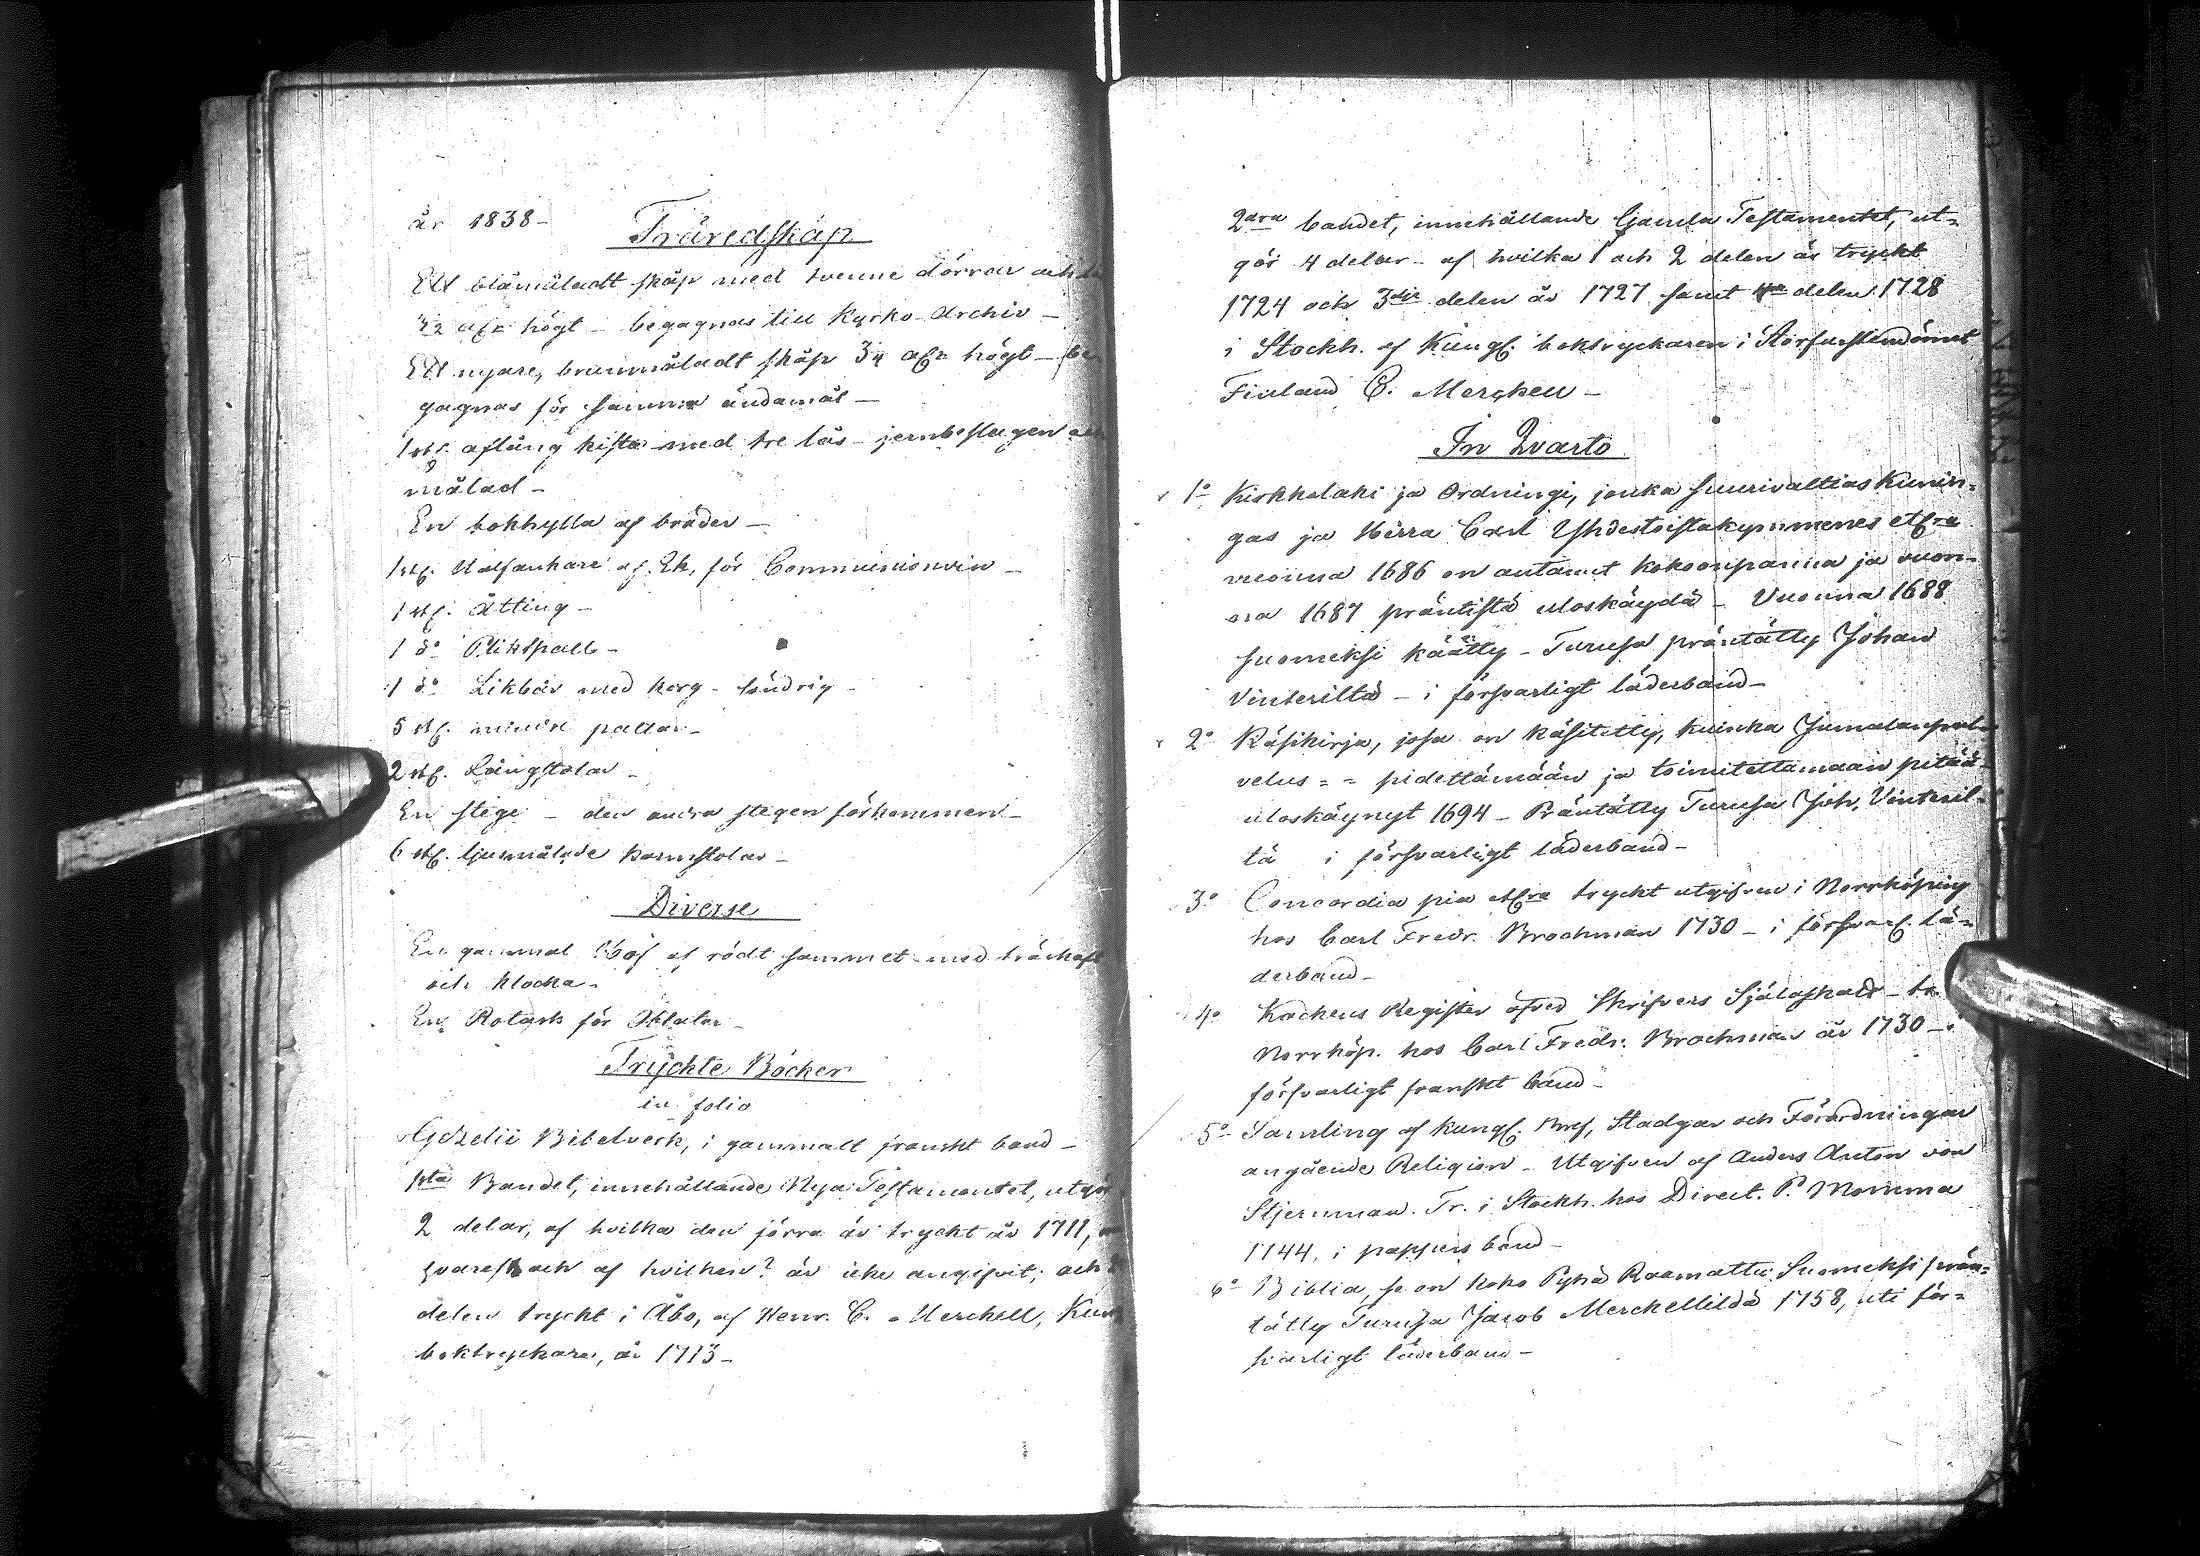 år 1838 -
Träredskap
Ett blåmåladt skåp med tvenne dörrar och
högt - begagnas till Kyrko Archiv -
Ett nyare, brunmåladt skåp 3/4 högt - be
gagnas för samma ändamål -
1 st. aflång kista med tre lås - jernbeslagen och
målad -
En bokhylla af bräder -
1 st. Halfankare af Ek, för Communionvin -
1 st. Åtting -
1 do Pliktpall -
1 do Likbår med korg - söndrig -
5 st. mindre pallar -
2 st. Långstolar -
En stege - den andra stegen förkommen -
6 st. ljusmålade karmstolar -
Diverse
En gammal Håf af rödt sammet med träskaft
och klocka -
En Kotask för Oblater -
Tryckte Böcker
in folio
Gezelii Bibelverk, i gammalt franskt band -
1sta Bandet, innehållande Nya Testamentet, utgör
2 delar, af hvilka den förra är tryckt år 1711,
hvarest och af hvilken? är icke angifvit; och
delen tryckt i Åbo, af Henr. C. Merckell, Kung
boktryckare, år 1713 -
2dra bandet, innehållande Gamla Testamentet, ut=
gör 4 delar - af hvilka 1 och 2 delen är tryckt
1724 och 3dje delen år 1727 samt 4de delen 1728
i Stockh. af Kungl. boktryckaren i Storfurstendömet
Finland C. Merckell -
In Qvarto
1o Kirkkolaki ja Ordningi, jonka suurivaltias Kunin=
gas ja Herra Carl Yhdestoistakymmenes etc
vuonna 1686 on antanut kokoonpanna ja vuon=
na 1687 präntistä uloskäydä - Vuonna 1688
suomeksi käätty - Turusa präntätty Johan
Vinterildä - i försvarligt läderband -
2o Käsikirja, josa on käsitetty, kuinka Jumalanpal=
velus = = pidettämään ja toimitettamaan pitää
uloskäynyt 1694 - Präntätty Turusa Joh. Vinteril=
tä i försvarligt läderband -
3o Concordia pia etc tryckt utgifven i Norrköping
hos Carl Fredr. Brochman 1730 - i försvarl. lä=
derband -
4o Kochens Register öfver Skrifvers Själaskatt - tr
Norrköp. hos Carl Fredr. Brochman år 1730 - i
försvarligt franskt band -
5o Samling af Kungl. Bref, Stadgar och Förordningar
angående Religion - Utgifven af Anders Anton von
Stjernman. Tr. i Stockh. hos Direct. P. Momma
1744, i pappers band -
6o Biblia, se on koko Pyhä Raamattu Suomeksi prän=
tätty Turusa Jacob Merckellildä 1758, uti för=
svarligt läderband -